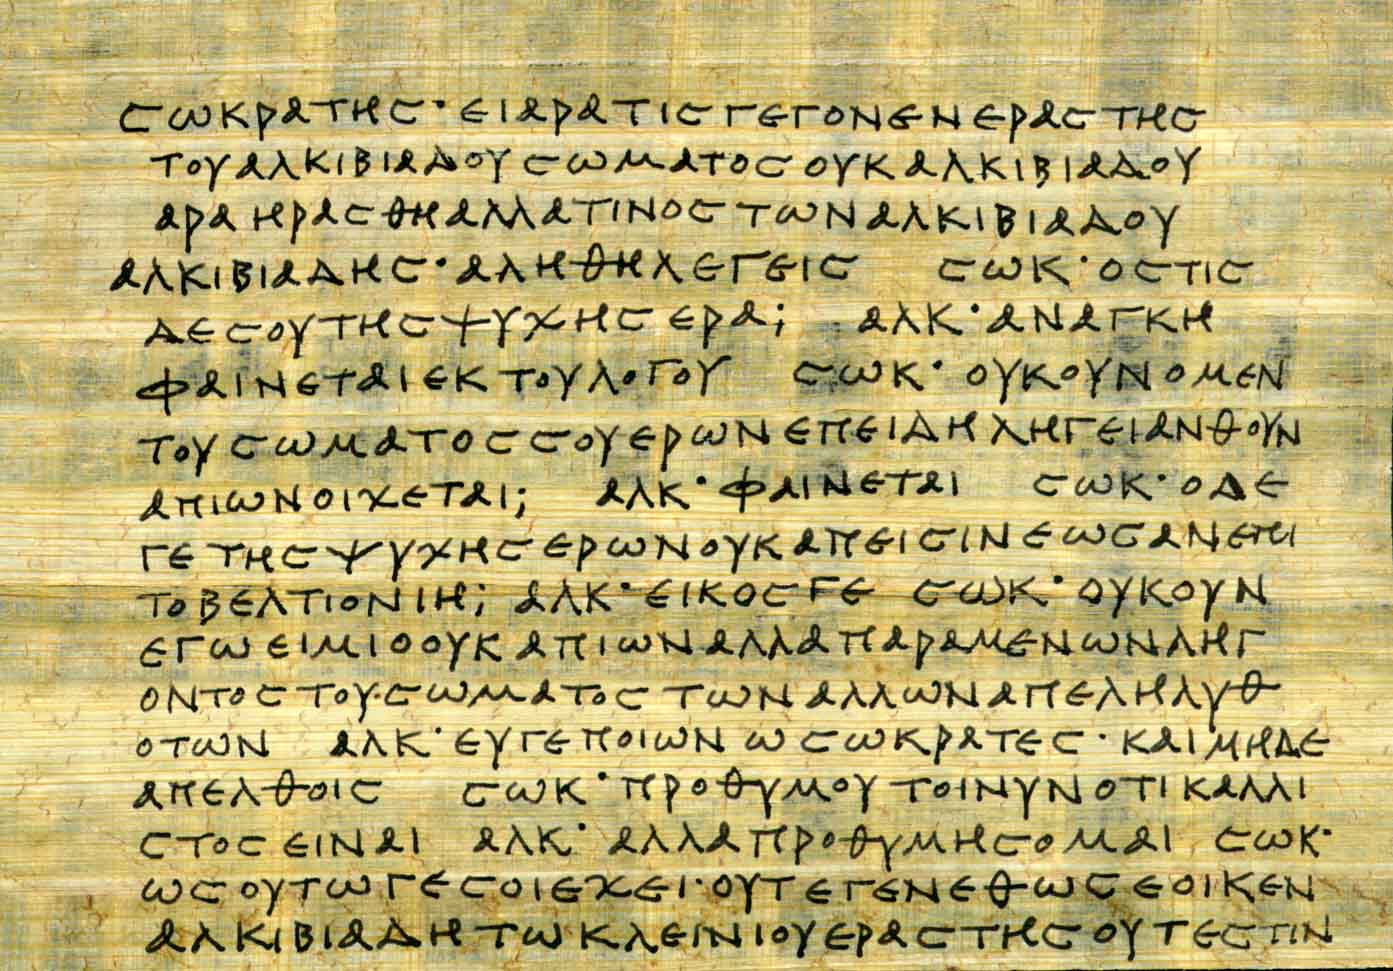 ϹΩΚΡΑΤΗϹ· ΕΙΑΡΑΤΙϹΓΕΓΟΝΕΝΕΡΑϹΤΗϹ
ΤΟΥΑΛΚΙΒΙΑΔΟΥϹΩΜΑΤΟϹΟΥΚΑΛΚΙΒΙΑΔΟΥ
ΑΡΑΗΡΑϹΘΗΑΛΛΑΤΙΝΟϹΤΩΝΑΛΚΙΒΙΑΔΟΥ
ΑΛΚΙΒΙΑΔΗϹ· ΑΛΗΘΗΛΕΓΕΙϹ ϹΩΚ· ΟϹΤΙϹ
ΔΕϹΟΥΤΗϹΨΥΧΗϹΕΡΑ; ΑΛΚ· ΑΝΑΓΚΗ
ΦΑΙΝΕΤΑΙΕΚΤΟΥΛΟΓΟΥ ϹΩΚ· ΟΥΚΟΥΝΟΜΕΝ
ΤΟΥϹΩΜΑΤΟϹϹΟΥΕΡΩΝΕΠΕΙΔΗΛΗΓΕΙΑΝΘΟΥΝ
ΑΠΙΩΝΟΙΧΕΤΑΙ; ΑΛΚ· ΦΑΙΝΕΤΑΙ ϹΩΚ· ΟΔΕ
ΓΕΤΗϹΨΥΧΗϹΕΡΩΝΟΥΚΑΠΕΙϹΙΝΕΩϹΑΝΕΠΙ
ΤΟΒΕΛΤΙΟΝΙΗ; ΑΛΚ· ΕΙΚΟϹΓΕ ϹΩΚ· ΟΥΚΟΥΝ
ΕΓΩΕΙΜΙΟΟΥΚΑΠΙΩΝΑΛΛΑΠΑΡΑΜΕΝΩΝΛΗΓ
ΟΝΤΟϹΤΟΥ·ϹΩΜΑΤΟϹΤΩΝΑΛΛΩΝΑΠΕΛΗΛΥΘ
ΟΤΩΝ ΑΛΚ· ΕΥΓΕΠΟΙΩΝΩϹΩΚΡΑΤΕϹ· ΚΑΙΜΗΔΕ
ΑΠΕΛΘΟΙϹ ϹΩΚ· ΠΡΟΘΥΜΟΥΤΟΙΝΥΝΟΤΙΚΑΛΛΙ
ϹΤΟϹΕΙΝΑΙ ΑΛΚ· ΑΛΛΑΠΡΟΘΥΜΗϹΟΜΑΙ ϹΩΚ·
ΩϹΟΥΤΩΓΕϹΟΙΕΧΕΙ· ΟΥΤΕΓΕΝΕΘΩϹΕΟΙΚΕΝ
ΑΛΚΙΒΙΑΔΗΤΩΚΛΕΙΝΙΟΥΕΡΑϹΤΗϹΟΥΤΕϹΤΙΝ